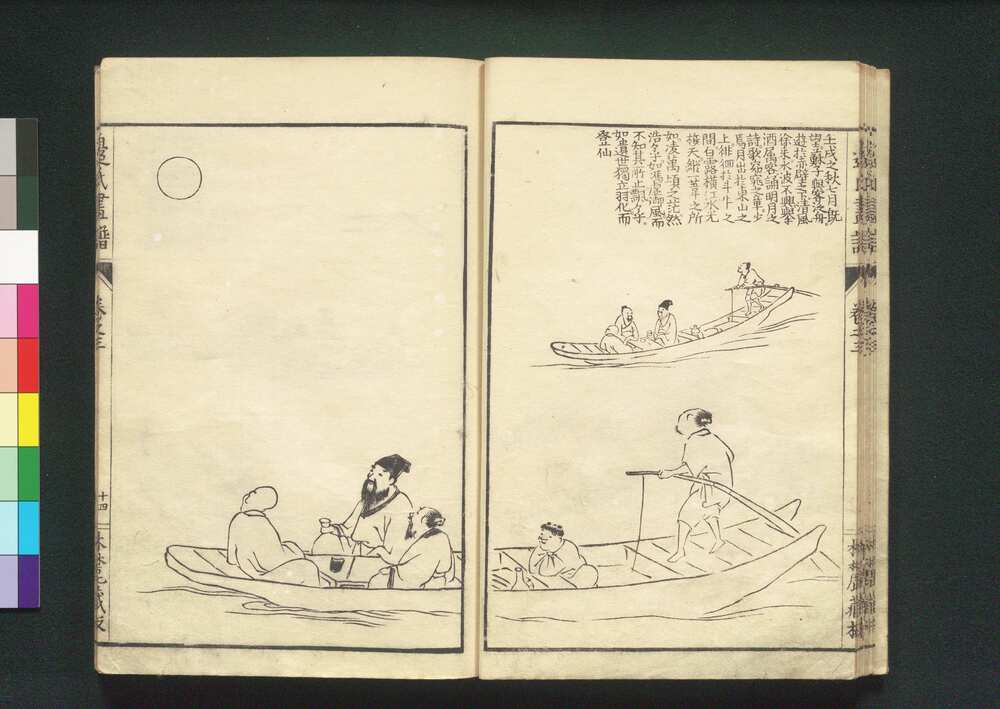 壬戌之秋七月既
望蘇子與客泛舟
遊於赤壁之下清風
徐来水波不興舉
酒属客誦明月之
詩歌窈窕之章少
焉月出於東山之
上徘徊於斗牛之
間白露横江水光
接天縦一葦之所
如凌萬頃之茫然
浩々乎如馮虚御風而
不知其所止飄々乎
如遺世獨立羽化而
登仙
氏畫譜
卷之三
十四